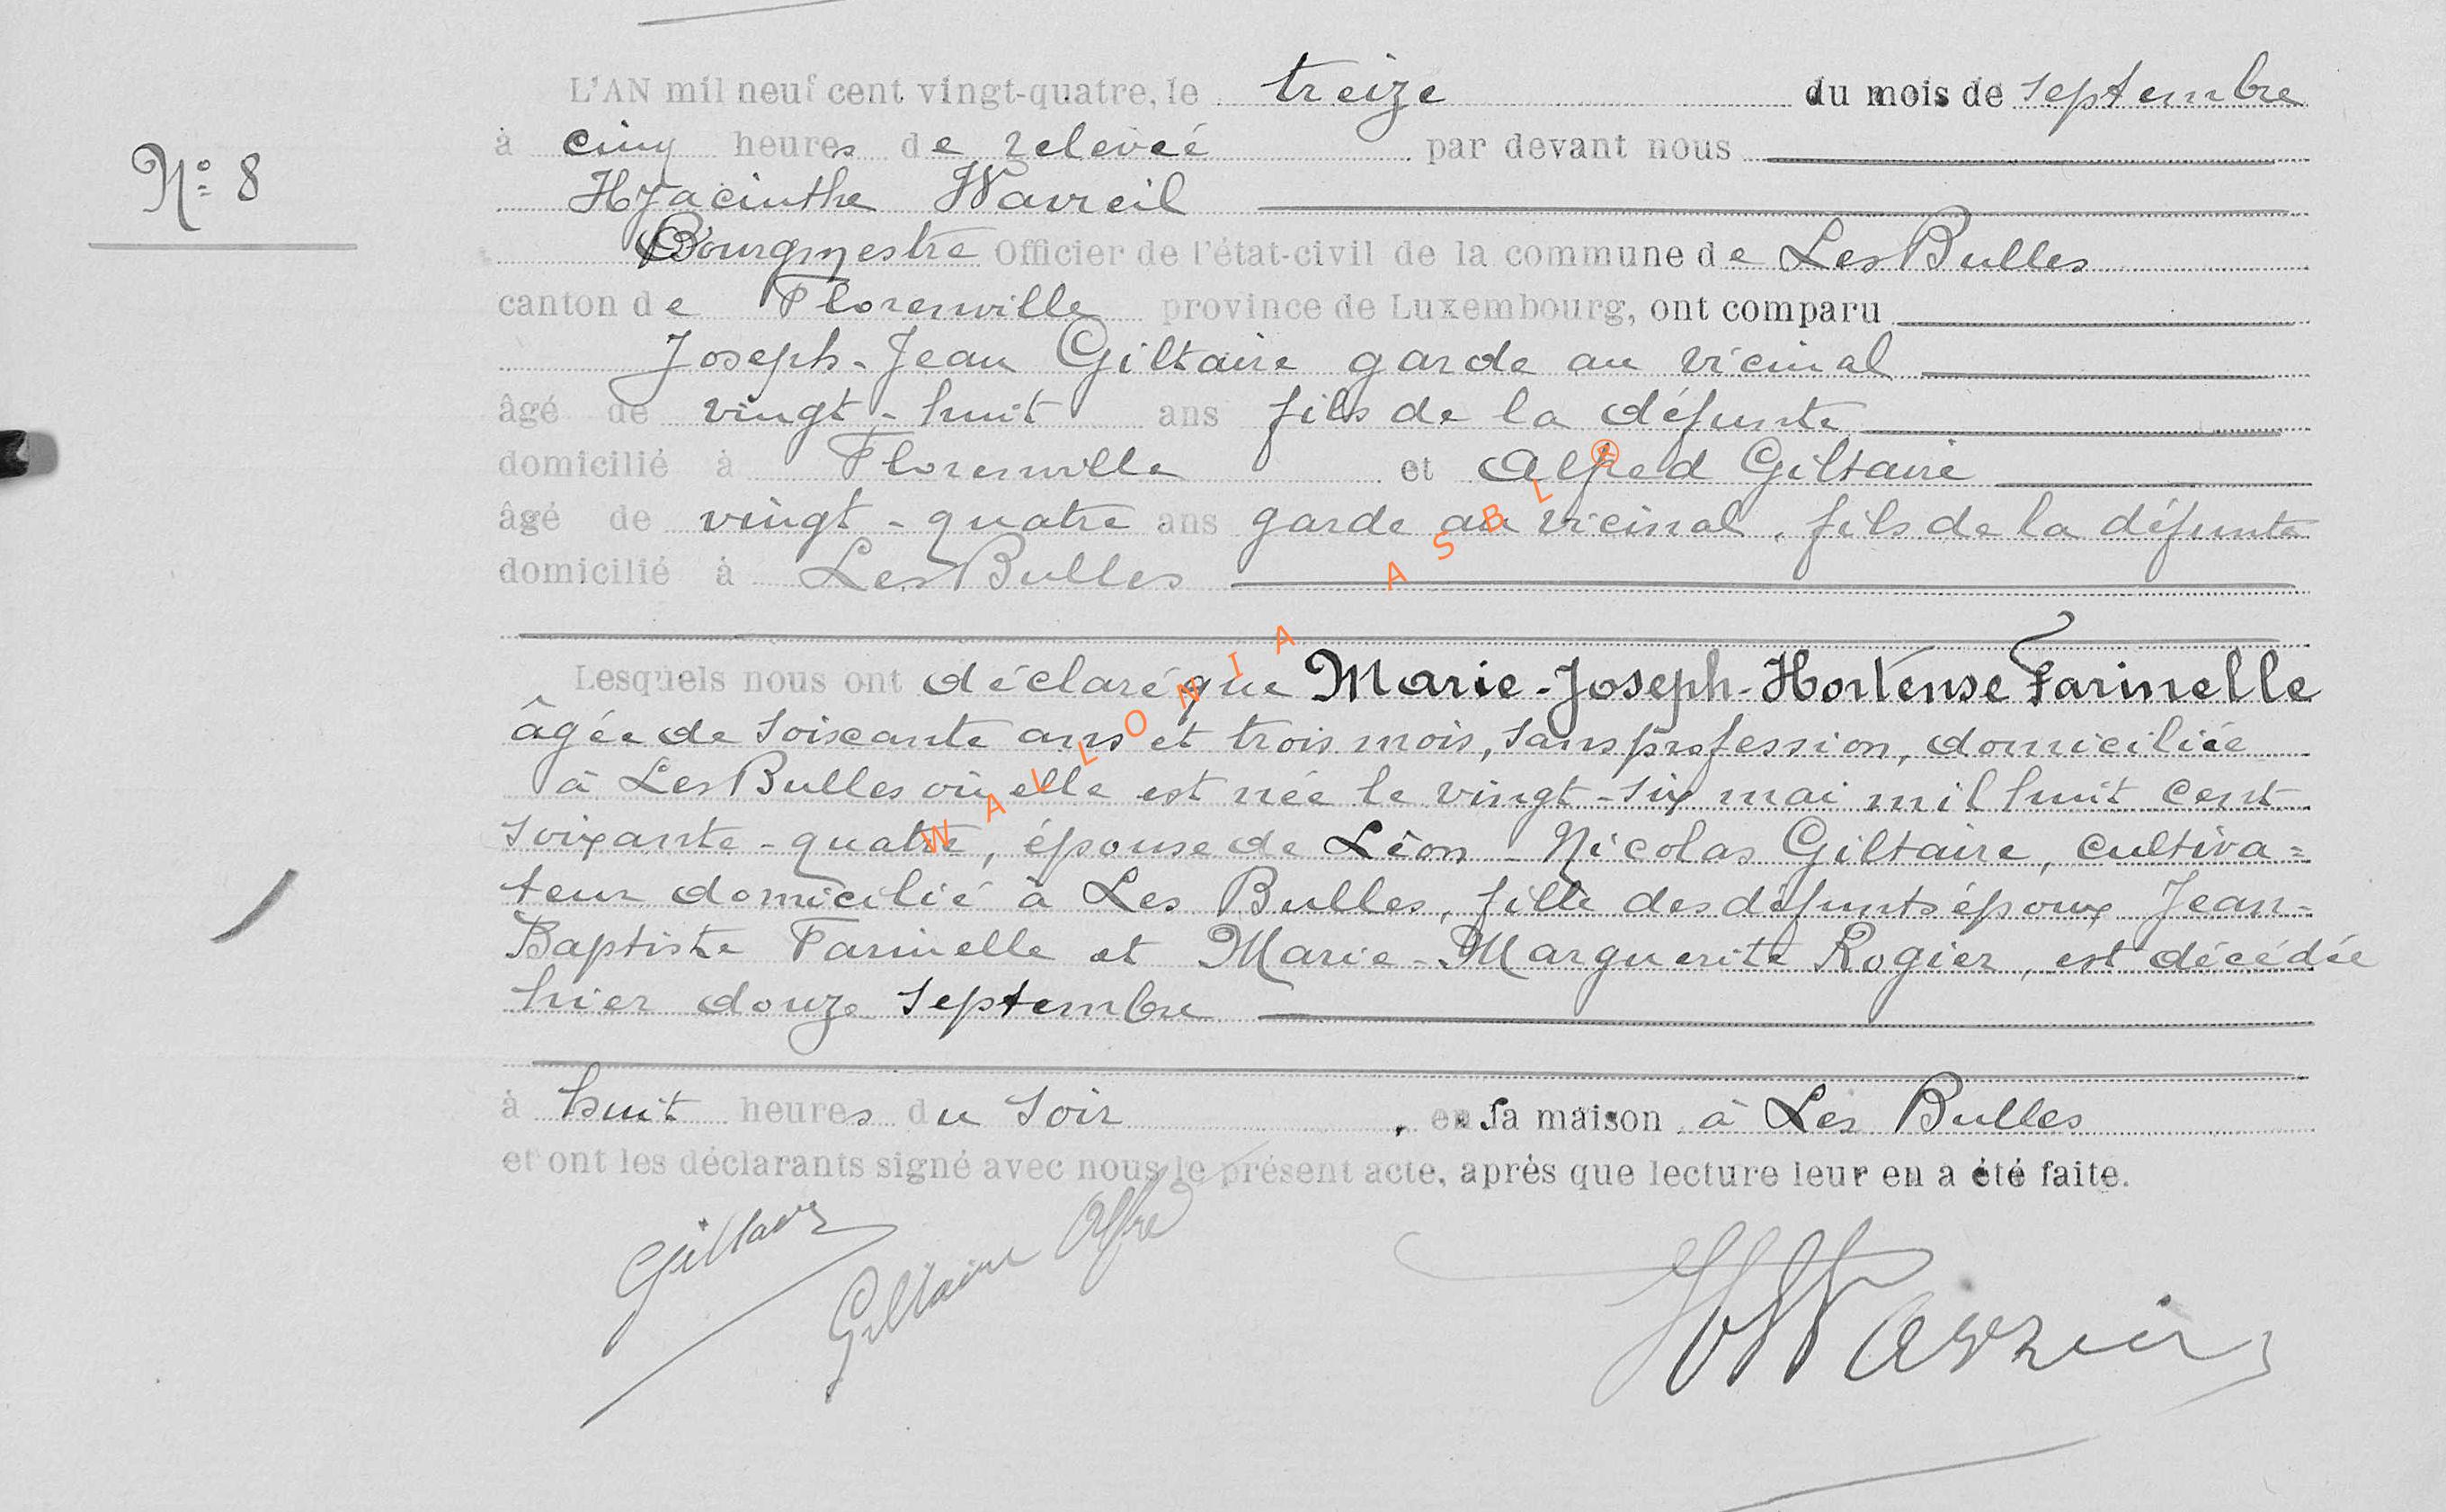 L'AN mil neuf cent vingt-quatre, le treize du mois de septembre
à cinq heures de releveé par devant nous
N° 8
Hyacinthe Wavreil
Bourgmestre Officier de l'état-civil de la commune de Les Bulles
canton de Florenville province de Luxembourg, ont comparu
Joseph-Jean Giltaire garde au vicinal
âgé de vingt-huit ans fils de la défunte
domicilié à Florenville et Alfred Giltaire
âgé de vingt-quatre ans garde au vicinal, fils de la défunte
domicilié à Les Bulles
WALLONIA ASBL ®
Lesquels nous ont déclaré que Marie-Joseph-Hortense Farinelle
âgée de soixante ans et trois mois, sans profession, domiciliée
à Les Bulles où elle est née le vingt-six mai mil huit cent
soixante-quatre, épouse de Léon-Nicolas Giltaire, cultiva=
teur domicilié à Les Bulles, fille des défunts époux Jean-
Baptiste Farinelle et Marie-Marguerite Rogier, est décédée
hier douze septembre
à huit heures du soir, en sa maison à Les Bulles
et ont les déclarants signé avec nous le présent acte, après que lecture leur en a été faite.
Giltaire
Giltaire Alfred